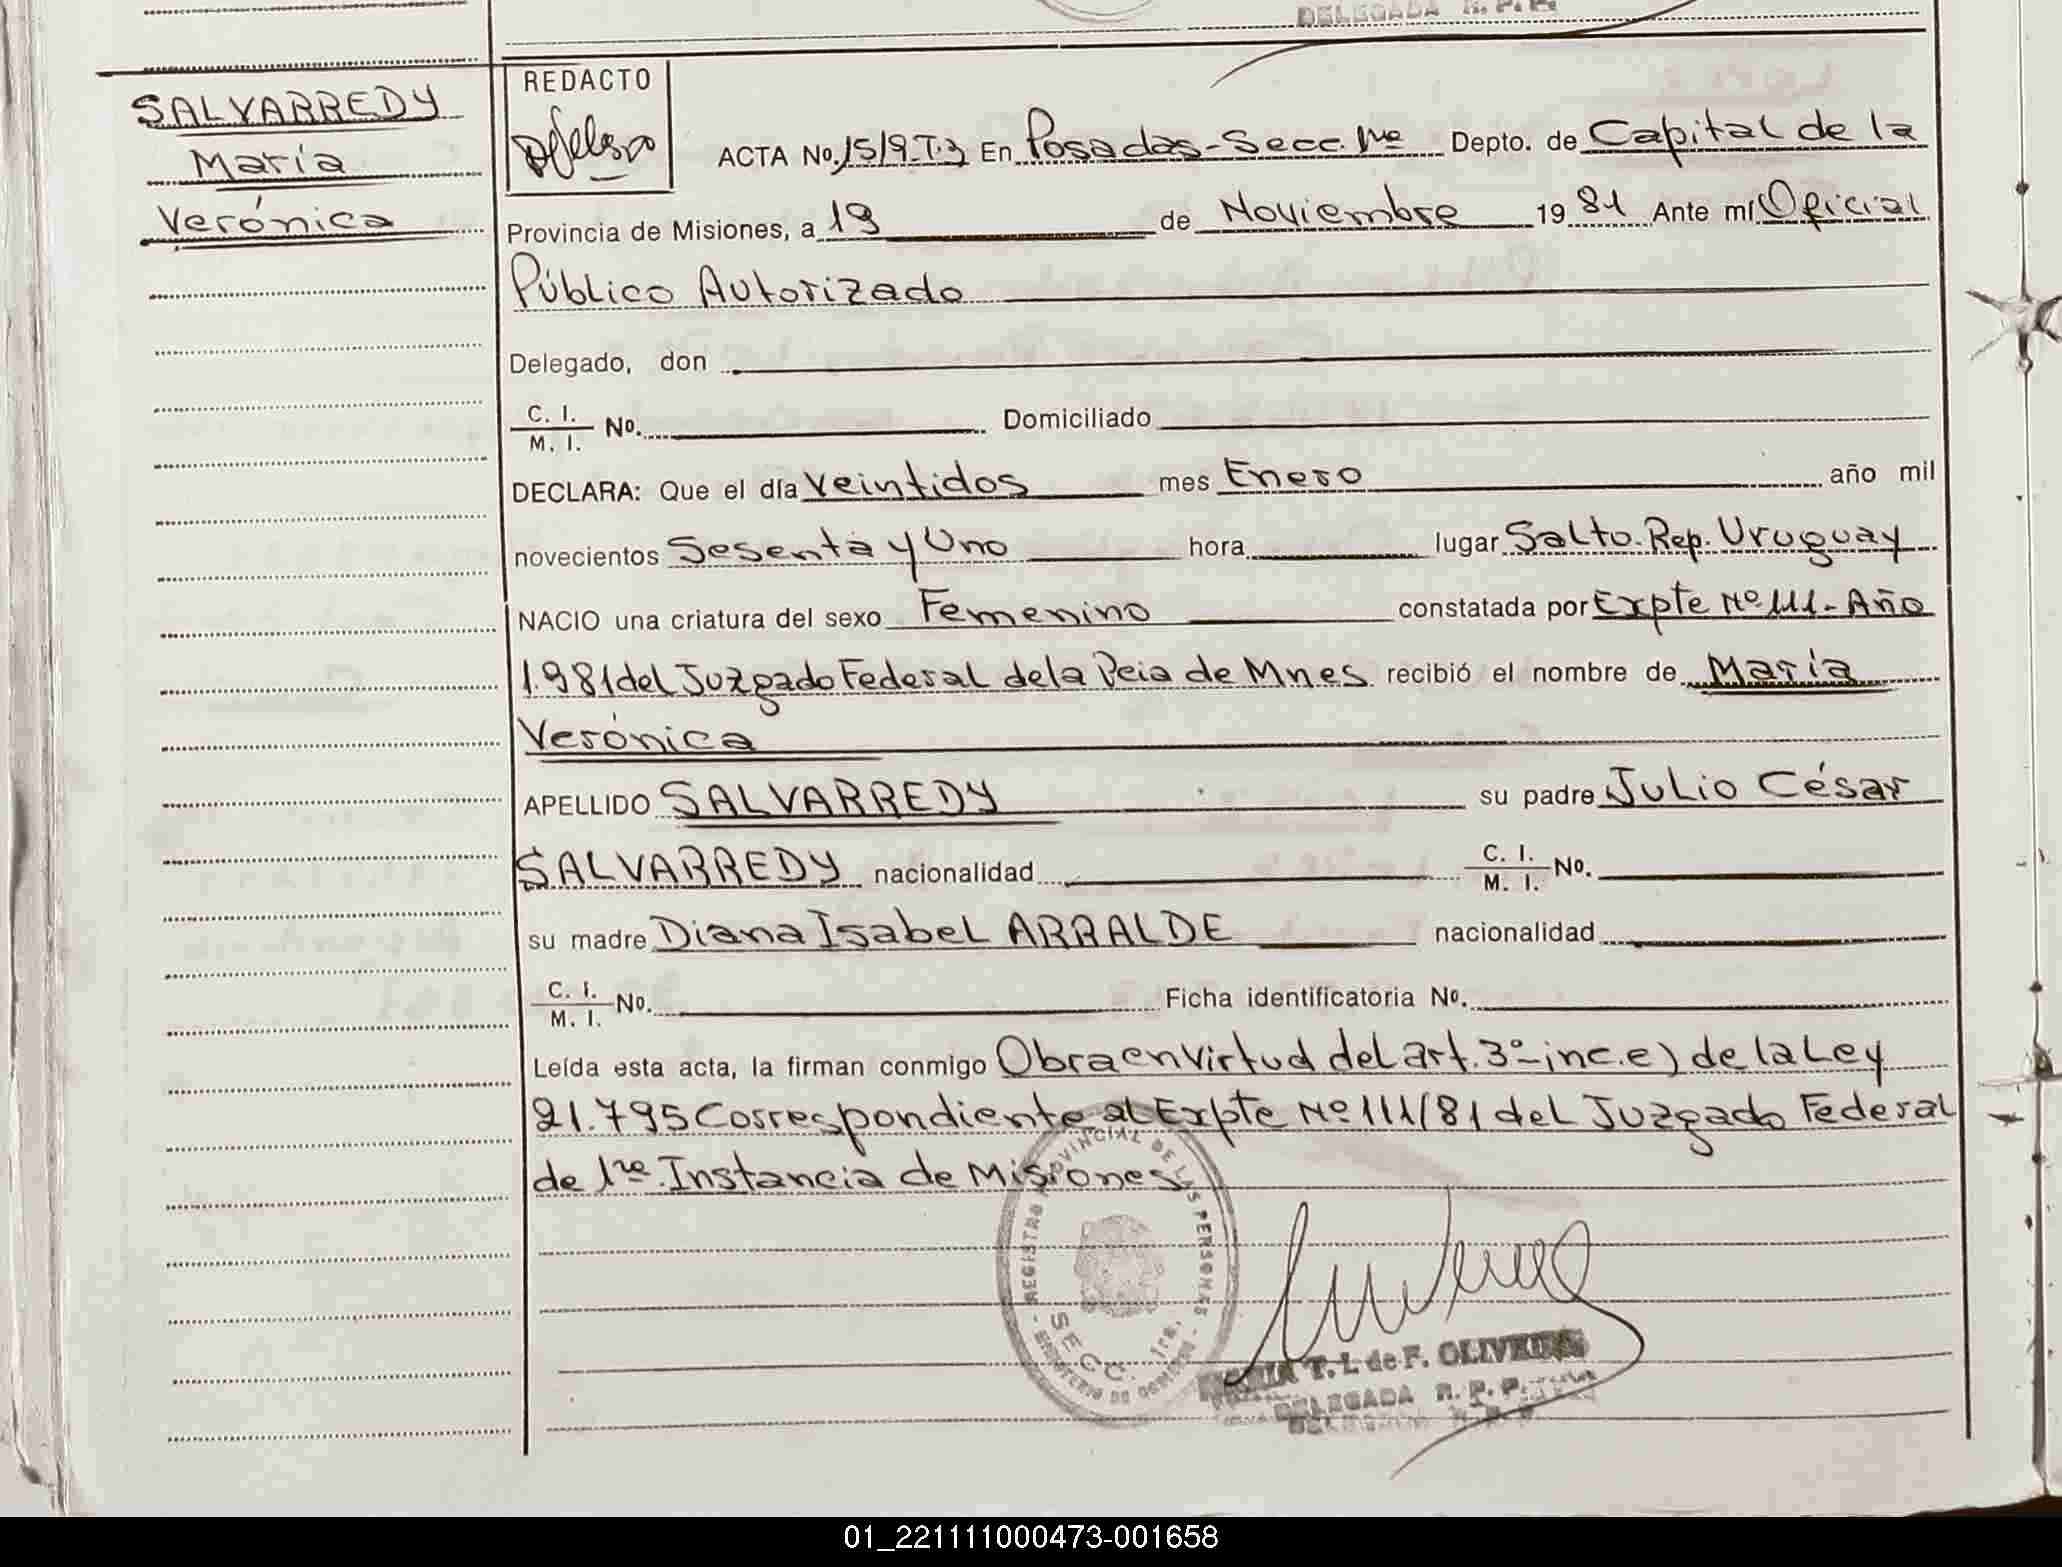 DELEGADA R. P. P.
SALVARREDY
María
Verónica
REDACTO
ACTA No. 1519.T.3 En Posadas-Secc.1ra Depto. de Capital de la
Provincia de Misiones, a 19 de Noviembre 1981 Ante mí Oficial
Público Autorizado
Delegado, don
C. I.
M. I. No. Domiciliado
DECLARA: Que el día Veintidos mes Enero año mil
novecientos Sesenta y Uno hora lugar Salto.Rep.Uruguay
NACIO una criatura del sexo Femenino constatada por Expte Nº 111-Año
1.981 del Juzgado Federal de la Pcia de Mnes recibió el nombre de María
Verónica
APELLIDO SALVARREDY su padre Julio César
SALVARREDY nacionalidad C. I.
M. I. No.
su madre Diana Isabel ARRALDE nacionalidad
C. I.
M. I. No. Ficha identificatoria No.
Leída esta acta, la firman conmigo Obra en Virtud del art. 3º-inc.e) de la Ley
21.795 Correspondiente al Expte Nº 111/81 del Juzgado Federal
de 1ra.Instancia de Misiones
REGISTRO PROVINCIAL DE LAS PERSONAS
SECC. 1ra.
T. L de F. OLIVEIRA
DELEGADA R. P. P.
01_221111000473-001658